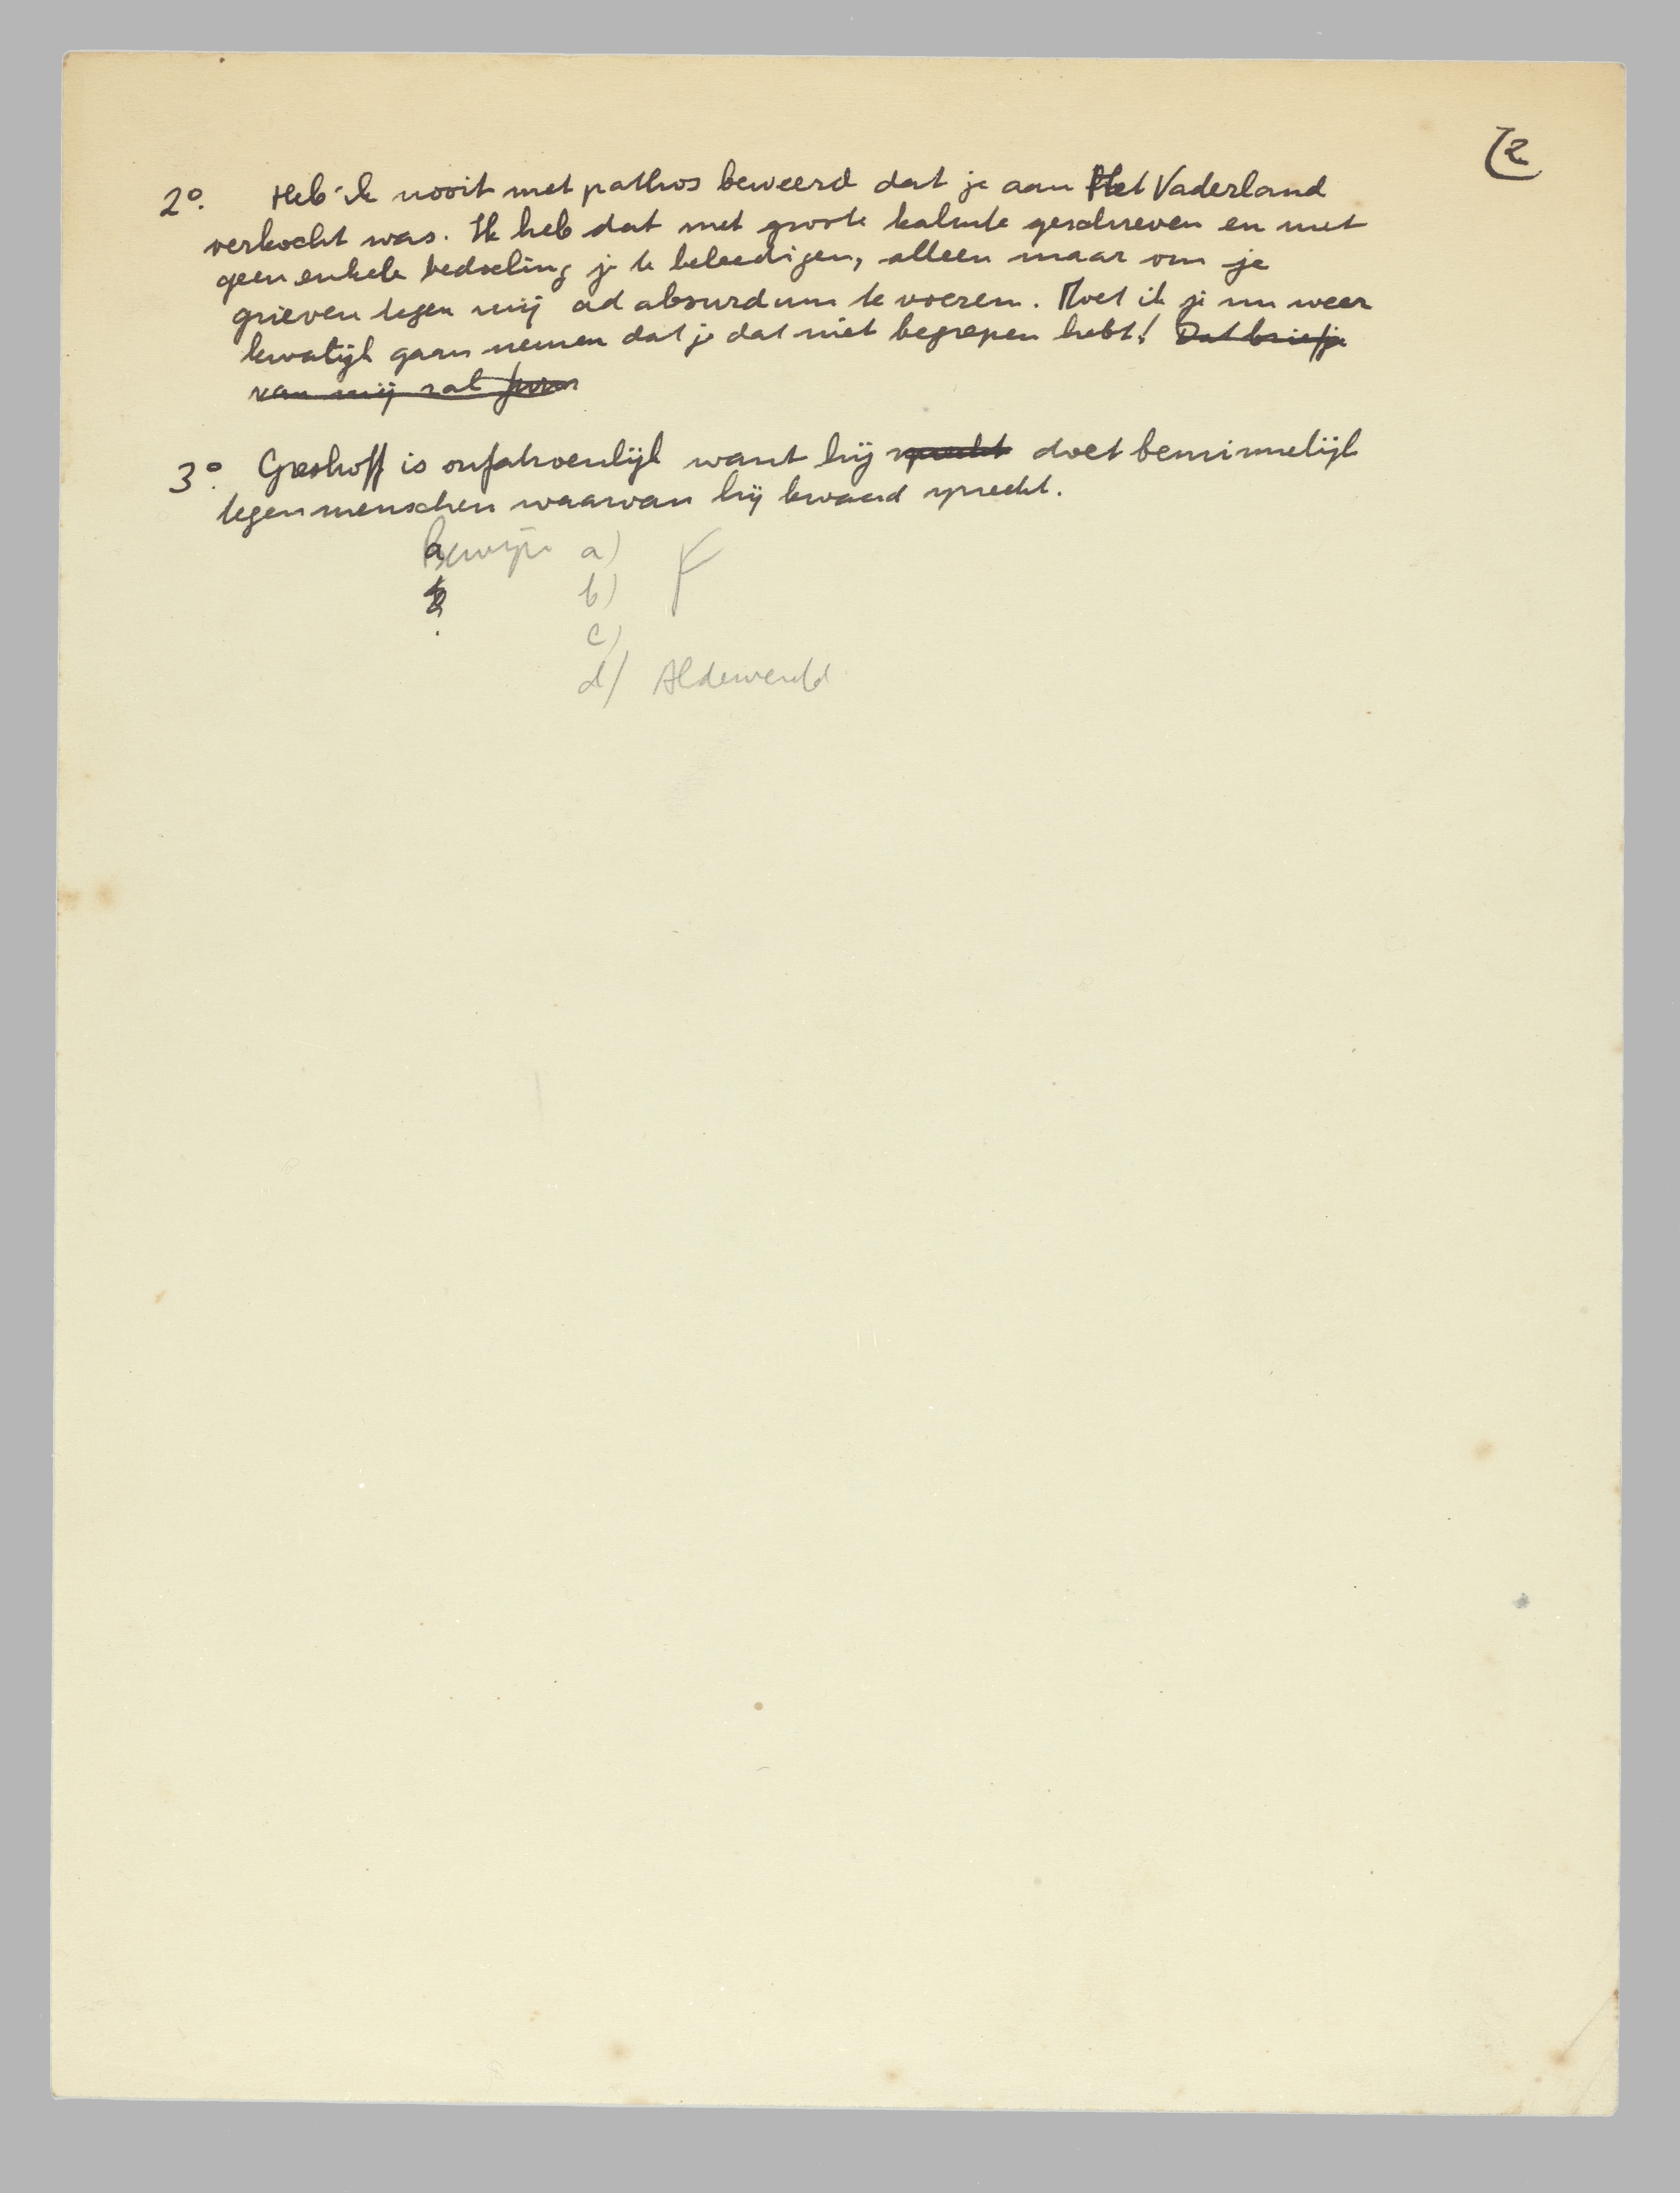 2
2º. Heb ik nooit met pathos beweerd dat je aan Het Vaderland
verkocht was. Ik heb dat met groote kalmte geschreven en met
geen enkele bedoeling je te beleedigen, alleen maar om je
grieven tegen mij ad absurdum te voeren. Moet ik je nu weer
kwalijk gaan nemen dat je dat niet begrepen hebt! Dat briefje
van mij zal
3º. Greshoff is onfatsoenlijk want hij spreekt doet beminnelijk
tegen menschen waarvan hij kwaad spreekt.
Bewijs a)
b)
c)
d) Aldewereld